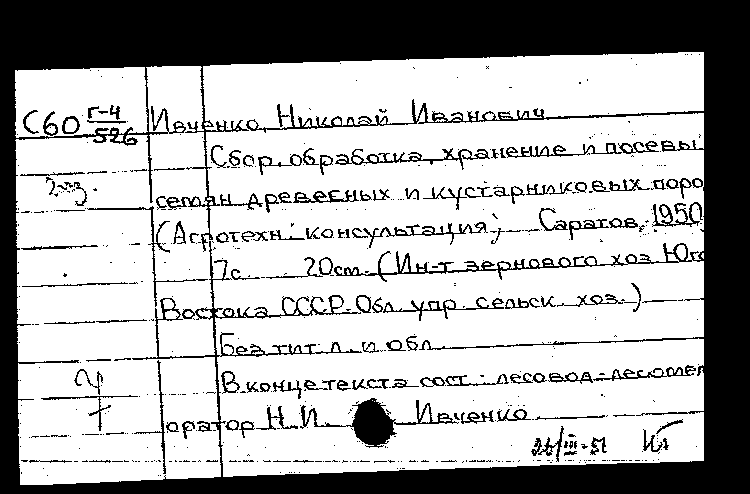 С60 Г-4/526 Ивченко, Николай Иванович
Сбор, обработка, хранение и посевы
2 экз. семян древесных и кустарниковых поро
(Агротехн. консультация) Саратов, 1950
7с. 20см. (Ин-т зернового хоз. Юго
Востока СССР. Обл. упр. сельск. хоз.)
Без тит. л. и обл.
В конце текста сост.: лесовод-лесомел
оратор Н.И. Ивченко.
26/III-51